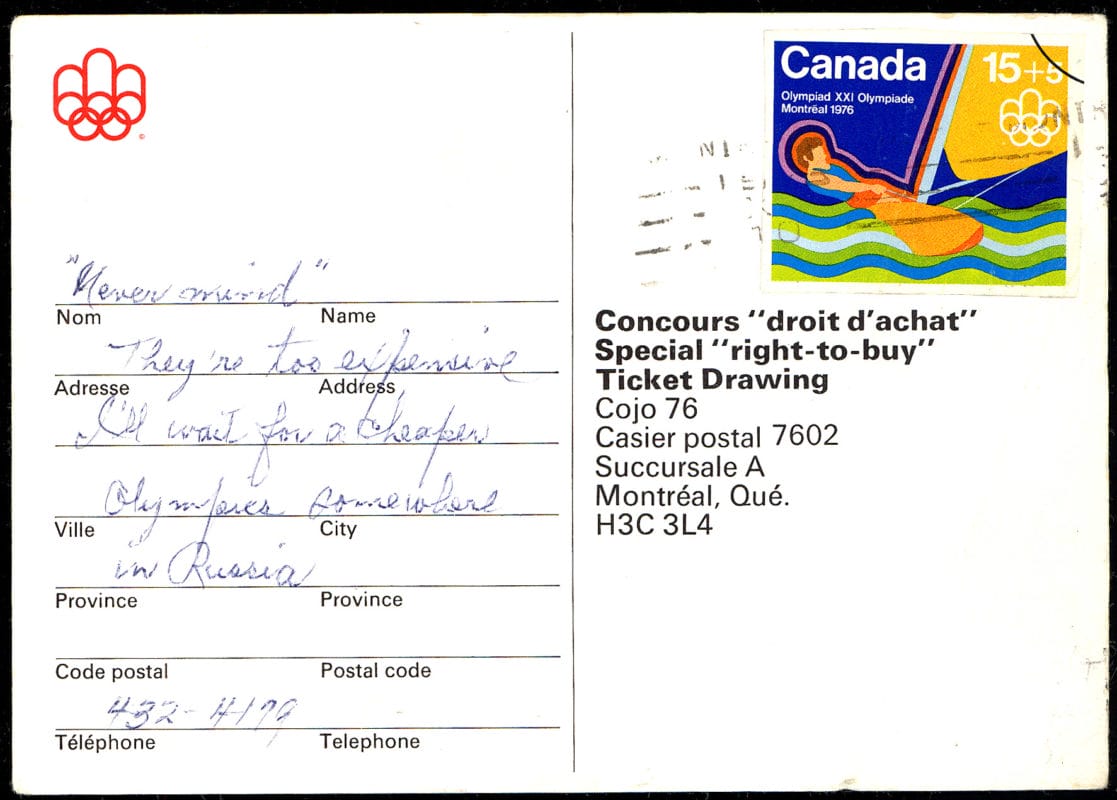 Canada
15+5
Olympiad XXI Olympiade
Montréal 1976
"Never mind"
Nom Name
They're too expensive
Adresse Address
I'll wait for a cheaper
Olympics somewhere
Ville City
in Russia
Province Province
Code postal Postal code
432-4179
Téléphone Telephone
Concours "droit d'achat"
Special "right-to-buy"
Ticket Drawing
Cojo 76
Casier postal 7602
Succursale A
Montréal, Qué.
H3C 3L4